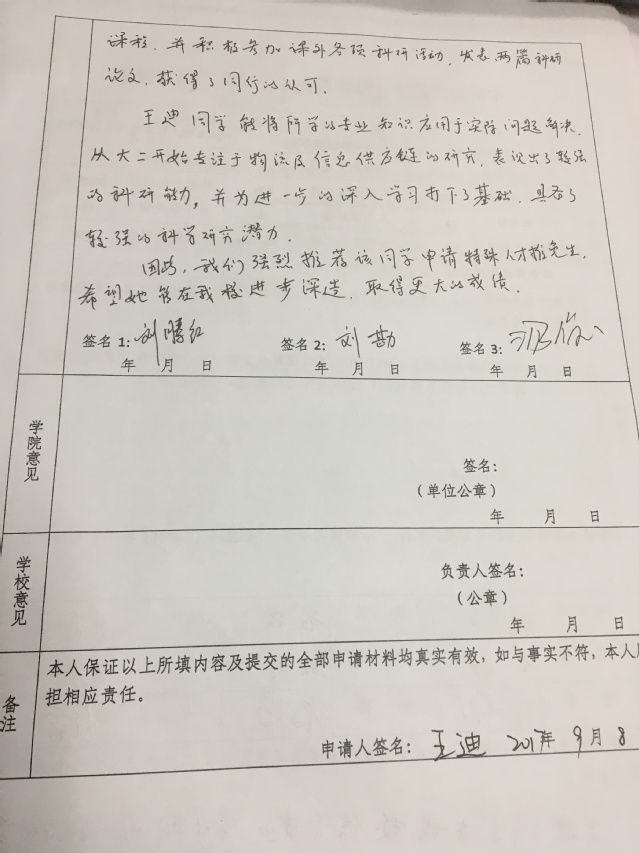 课程，并积极参加课外各项科研活动，发表两篇科研
论文，获得了同行的认可。
王迪同学能将所学的专业知识应用于实际问题解决，
从大二开始专注于物流及信息供应链的研究，表现出了较强
的科研能力，并为进一步的深入学习打下了基础，具有了
较强的科学研究潜力。
因此，我们强烈推荐该同学申请特殊人才推免生，
希望她能在我校进步深造，取得更大的成绩。
签名1：刘腾红 签名2：刘勘 签名3：
年 月 日 年 月 日 年 月 日
学院意见
签名：
（单位公章）
年 月 日
学校意见
负责人签名：
（公章）
年 月 日
备注
本人保证以上所填内容及提交的全部申请材料均真实有效，如与事实不符，本人
担相应责任。
申请人签名：王迪 2017年9月8